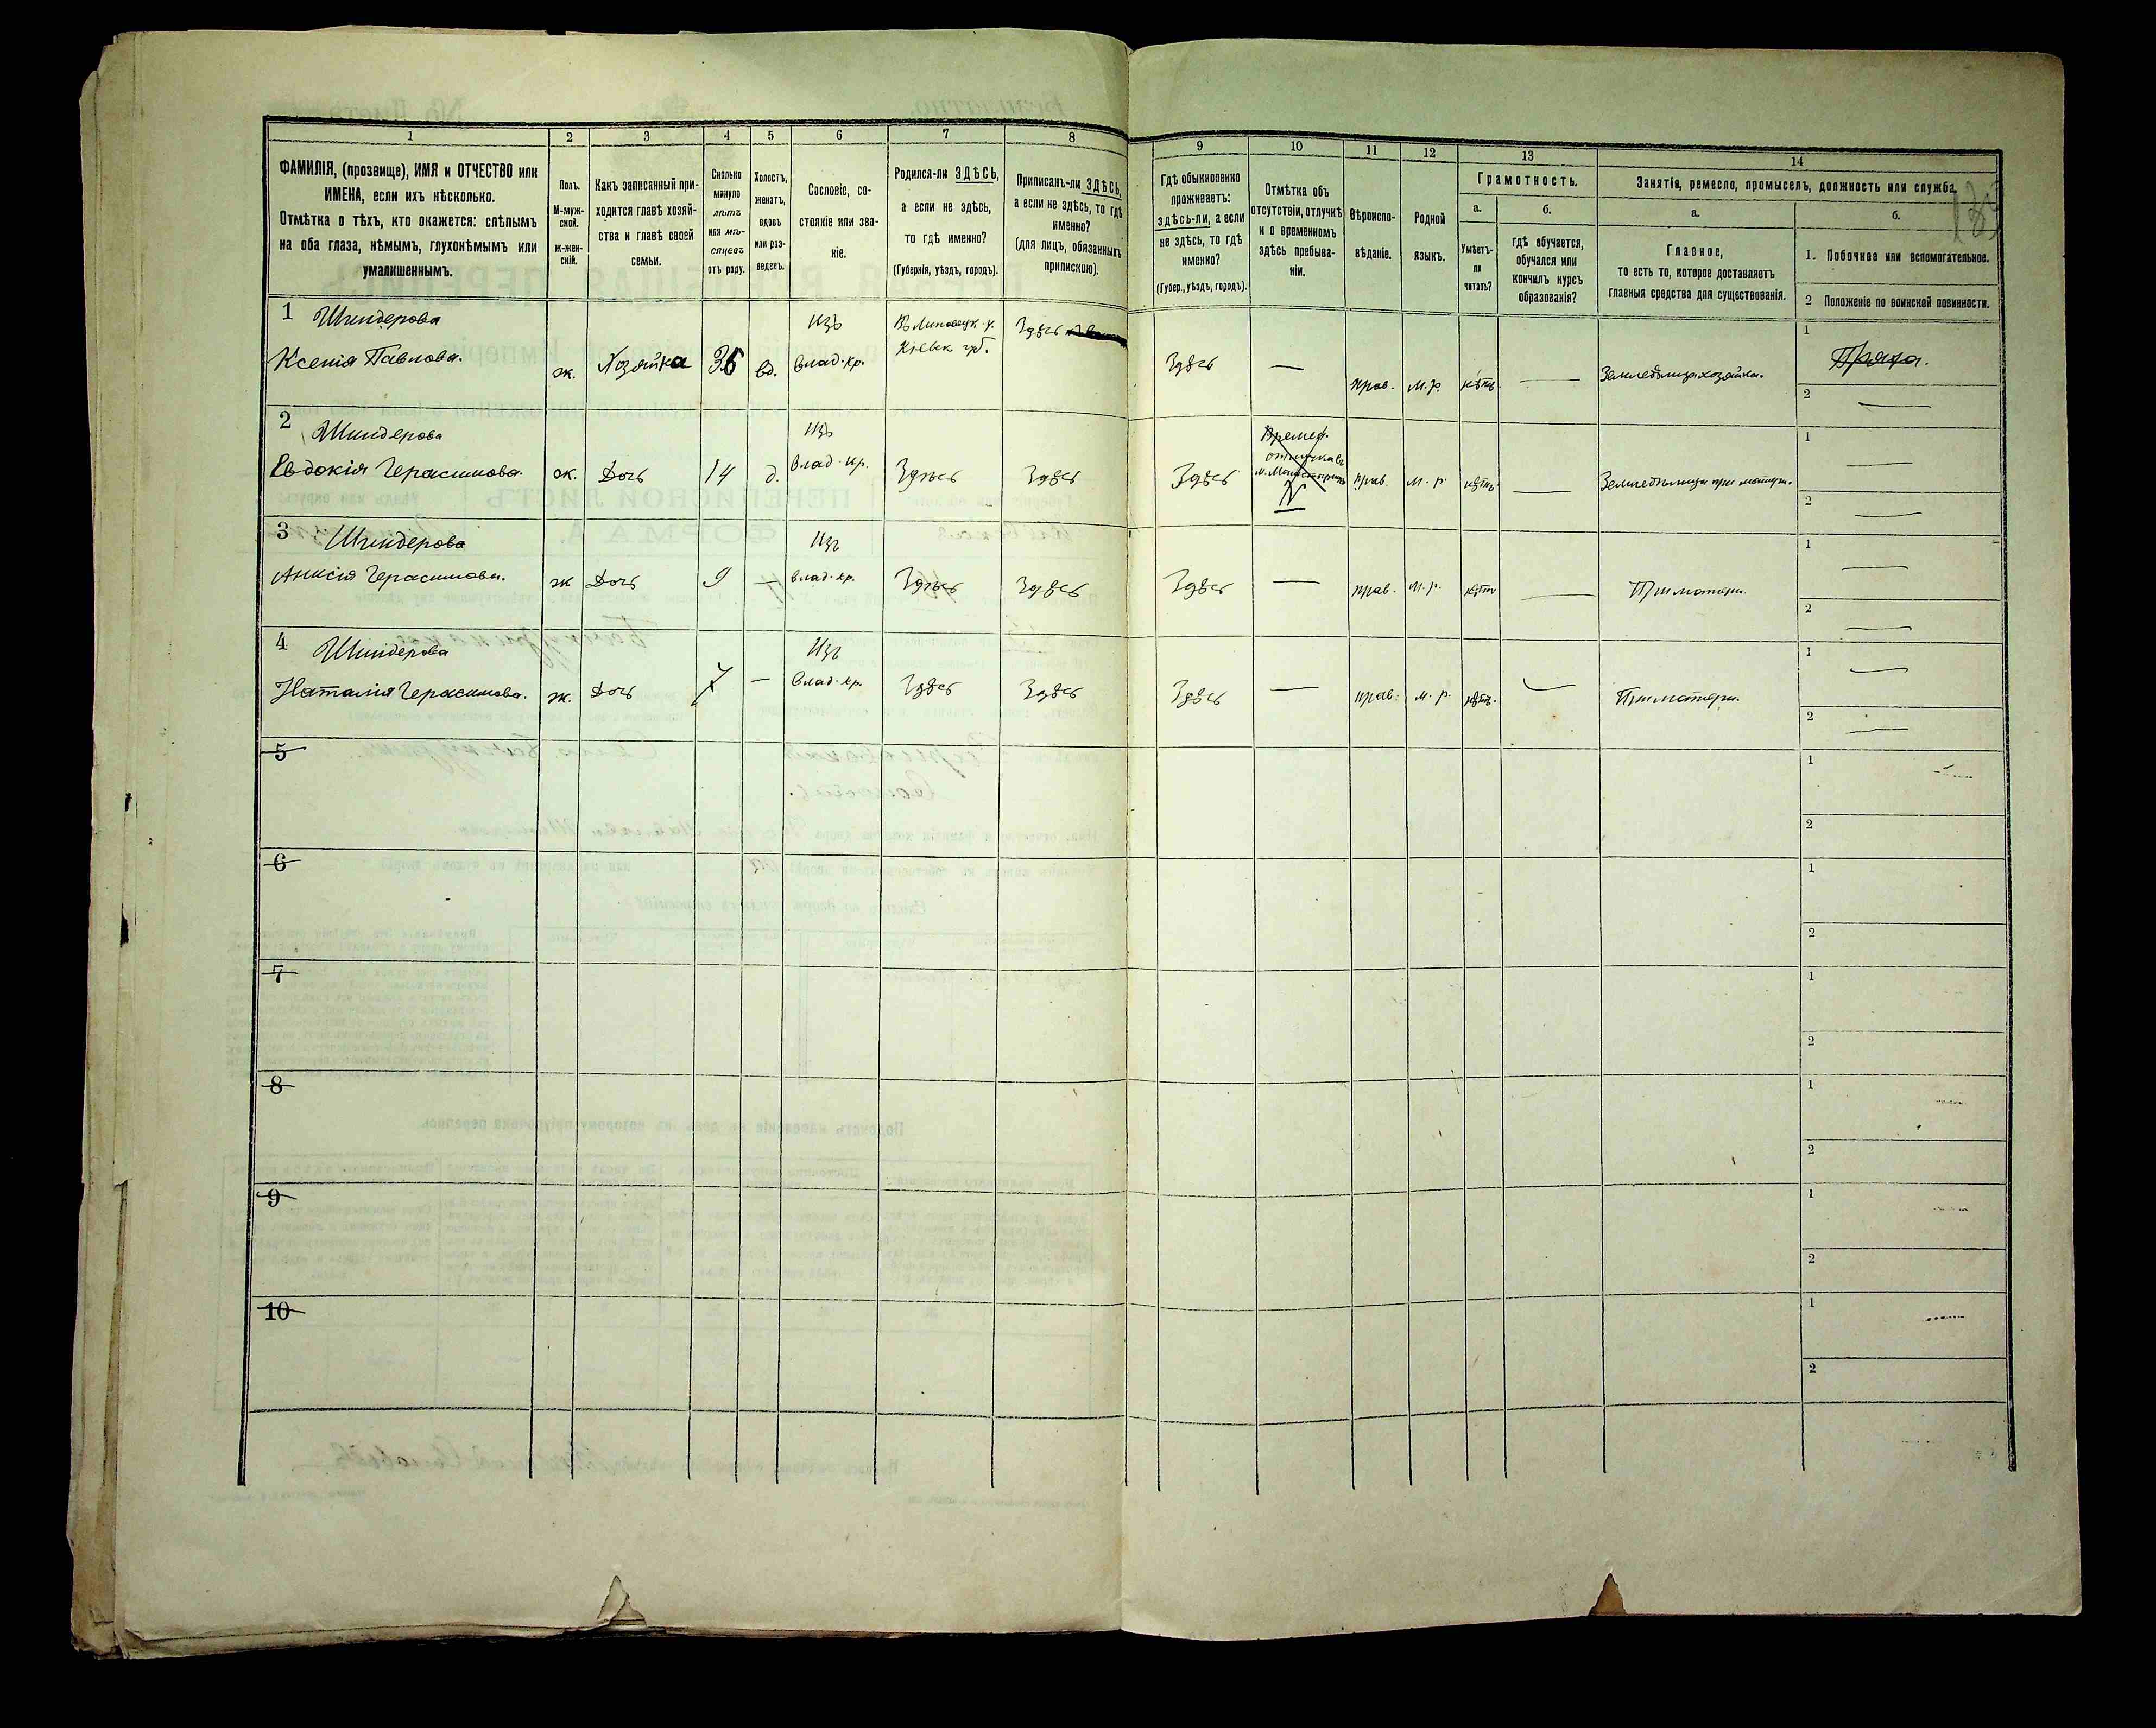 1 2 3 4 5 6 7 8 9 10 11 12 13 14
ФАМИЛІЯ, (прозвище), ИМЯ и ОТЧЕСТВО или
ИМЕНА, если ихъ нѣсколько.
Отмѣтка о тѣхъ, кто окажется: слѣпымъ
на оба глаза, нѣмымъ, глухонѣмымъ или
умалишеннымъ.
Полъ.
М-муж-
ской.
ж-жен-
скій.
Какъ записанный при-
ходится главѣ хозяй-
ства и главѣ своей
семьи.
Сколько
минуло
лѣтъ
или мѣ-
сяцевъ
отъ роду.
Холостъ,
женатъ,
вдовъ
или раз-
веденъ.
Сословіе, со-
стояніе или зва-
ніе.
Родился-ли ЗДѢСЬ,
а если не здѣсь,
то гдѣ именно?
(Губернія, уѣздъ, городъ).
Приписанъ-ли ЗДѢСЬ,
а если не здѣсь, то гдѣ
именно?
(для лицъ, обязанныхъ
припискою).
Гдѣ обыкновенно
проживаетъ:
здѣсь-ли, а если
не здѣсь, то гдѣ
именно?
(Губер., уѣздъ, городъ).
Отмѣтка объ
отсутствіи, отлучкѣ
и о временномъ
здѣсь пребыва-
ніи.
Вѣроиспо-
вѣданіе.
Родной
языкъ.
Грамотность.
а.
Умѣетъ-
ли
читать?
б.
гдѣ обучается,
обучался или
кончилъ курсъ
образованія?
Занятія, ремесло, промыселъ, должность или служба.
а.
Главное,
то есть то, которое доставляетъ
главныя средства для существованія.
б.
1. Побочное или вспомогательное.
2 Положеніе по воинской повинности.
1 Шиндерова Изъ Въ Липовецк. у. Здѣсь 1
Ксенія Павлова. ж. Хозяйка 36 вд. Влад. кр. Кіевск губ. Здѣсь — прав. м.р. нѣтъ — Земледѣлица хозяйка. Пряха.
2 —
2 Шиндерова Изъ Времен. 1 —
отлучка въ
Евдокія Герасимова. ж. Дочь 14 д. Влад. кр. Здѣсь Здѣсь Здѣсь прав. м. р. нѣтъ — Земледѣлица при матери.
2 —
3 Шиндерова Изъ 1 —
Анисія Герасимова. ж Дочь 9 — Влад. кр. Здѣсь Здѣсь Здѣсь — прав. м. р. нѣтъ — При матери.
2 —
4 Шиндерова Изъ 1 —
Наталія Герасимова. ж. Дочь 7 — Влад. кр. Здѣсь Здѣсь Здѣсь — прав. м. р. нѣтъ. — При матери.
2 —
5 1
2
6 1
2
7 1
2
8 1
2
9 1
2
10 1
2